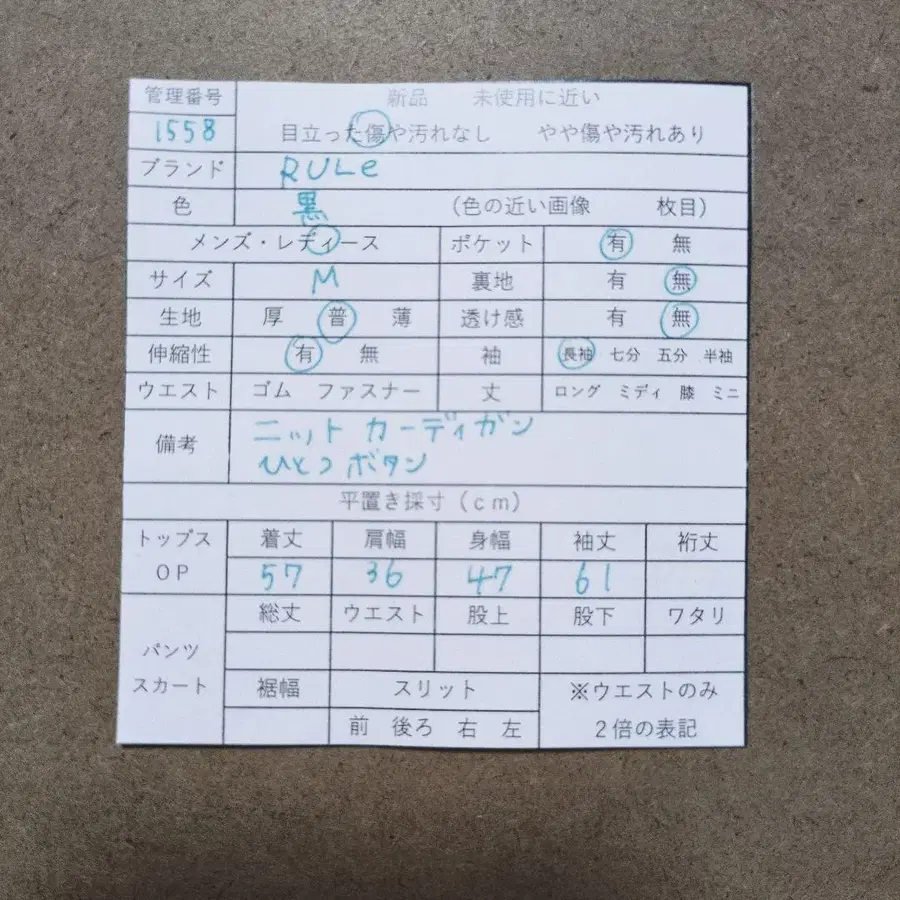 管理番号 新品 未使用に近い
1558 目立った傷や汚れなし やや傷や汚れあり
ブランド RULe
色 黒 (色の近い画像 枚目)
メンズ・レディース ポケット 有 無
サイズ M 裏地 有 無
生地 厚 普 薄 透け感 有 無
伸縮性 有 無 袖 長袖 七分 五分 半袖
ウエスト ゴム ファスナー 丈 ロング ミディ 膝 ミニ
備考 ニットカーディガン
ひとつボタン
平置き採寸(cm)
トップス 着丈 肩幅 身幅 袖丈 裄丈
OP 57 36 47 61
総丈 ウエスト 股上 股下 ワタリ
パンツ
スカート 裾幅 スリット ※ウエストのみ
前 後ろ 右 左 2倍の表記